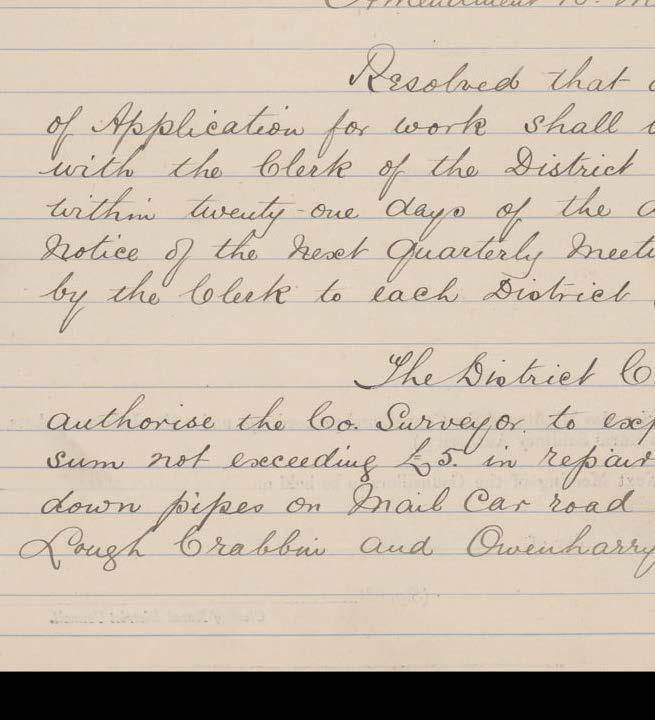 Amendment
Resolved that
of Application for work shall
with the Clerk of the District
within twenty-one days of the
Notice of the Next Quarterly Meeti
by the Clerk to each District
The District C
authorise the Co. Surveyor to exp
sum not exceeding £5. in repair
down pipes on Mail Car road
Lough Crabbin and Owenharry